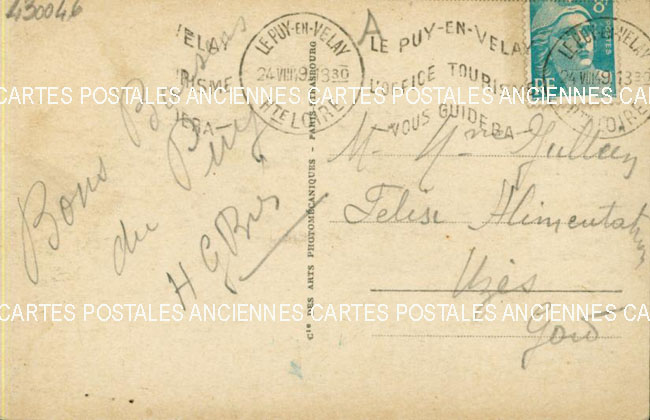 430046
A
VELAY
RISME
ERA
LE PUY-EN-VELAY
24 VIII 49 13 30
HTE LOIRE
LE PUY-EN-VELAY
L'OFFICE TOURIS
VOUS GUIDERA
LE PUY-EN-VELAY
24 VIII 49 13 30
HTE LOIRE
8F
POSTES
CARTES POSTALES ANCIENNES CARTES POSTALES ANCIENNES
Bons Baisers
du Puy
H G
Cie DES ARTS PHOTOMÉCANIQUES - PARIS-STRASBOURG
M. Mme
Alimentation
Uzès
Gard
CARTES POSTALES ANCIENNES CARTES POSTALES ANCIENNES